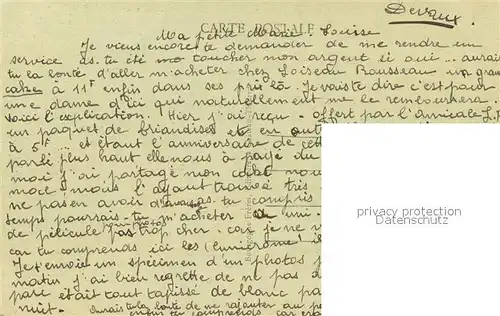 Devaux.
CARTE POSTALE
Ma petite Marie Louise
Je viens encore te demander de me rendre un
service as-tu été me toucher mon argent si oui ... aurais
tu la bonté d'aller m'acheter chez Loiseau Rousseau un gros
cake à 11f enfin dans ces prix là. Je vais te dire c'est pour
une dame d'ici qui naturellement me le remboursera
voici l'explication. Hier j'ai reçu - offert par l'Amicale
un paquet de friandises et en outre
à 5f ... et étant l'anniversaire de cette
parli plus haut elle nous a payé du
moi j'ai partagé mon nous
mais l'ayant trouvé très
ne pas en avoir d'avantage tu compris
temps pourrais-tu m'acheter uni-
de pélicule pas trop cher. car je ne
car tu comprends ici les
Je t'envoie un spécimen d'un photos
matin j'ai bien regretté de ne pas
parc était tout tapissé de blanc
nuit. Aurais tu la bonté de me rajouter au
enfin tu comprends car
privacy protection
Datenschutz